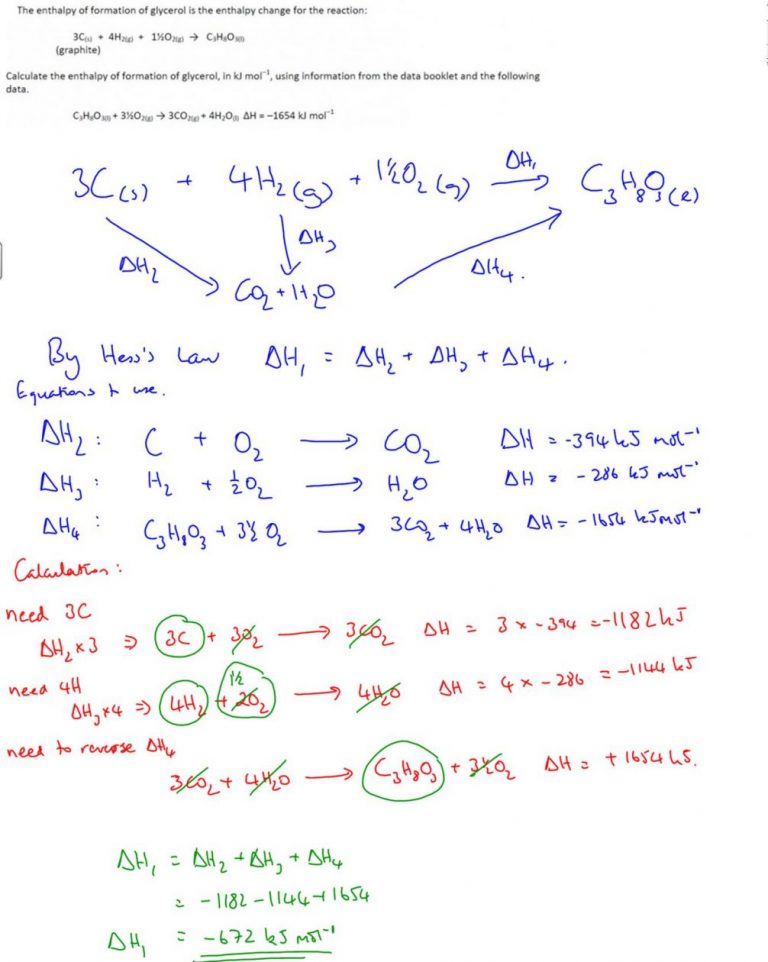 The enthalpy of formation of glycerol is the enthalpy change for the reaction:
3C(s) + 4H2(g) + 1½O2(g) → C3H8O3(l)
(graphite)
Calculate the enthalpy of formation of glycerol, in kJ mol⁻¹, using information from the data booklet and the following
data.
C3H8O3(l) + 3½O2(g) → 3CO2(g) + 4H2O(l) ΔH = −1654 kJ mol⁻¹
3C(s) + 4H2(g) + 1½O2(g) ΔH1 → C3H8O3(l)
ΔH2 ΔH3 ΔH4.
CO2 + H2O
By Hess's Law ΔH1 = ΔH2 + ΔH3 + ΔH4.
Equations to use.
ΔH2: C + O2 → CO2 ΔH = -394 kJ mol⁻¹
ΔH3: H2 + ½O2 → H2O ΔH = -286 kJ mol⁻¹
ΔH4: C3H8O3 + 3½O2 → 3CO2 + 4H2O ΔH = -1654 kJ mol⁻¹
Calculation:
need 3C
ΔH2×3 ⇒ 3C + 3O2 → 3CO2 ΔH = 3 × -394 = -1182 kJ
need 4H
ΔH3×4 ⇒ 4H2 + 2O2 → 4H2O ΔH = 4 × -286 = -1144 kJ
1½
need to reverse ΔH4
3CO2 + 4H2O → C3H8O3 + 3½O2 ΔH = +1654 kJ.
ΔH1 = ΔH2 + ΔH3 + ΔH4
= -1182 -1144 +1654
ΔH1 = -672 kJ mol⁻¹